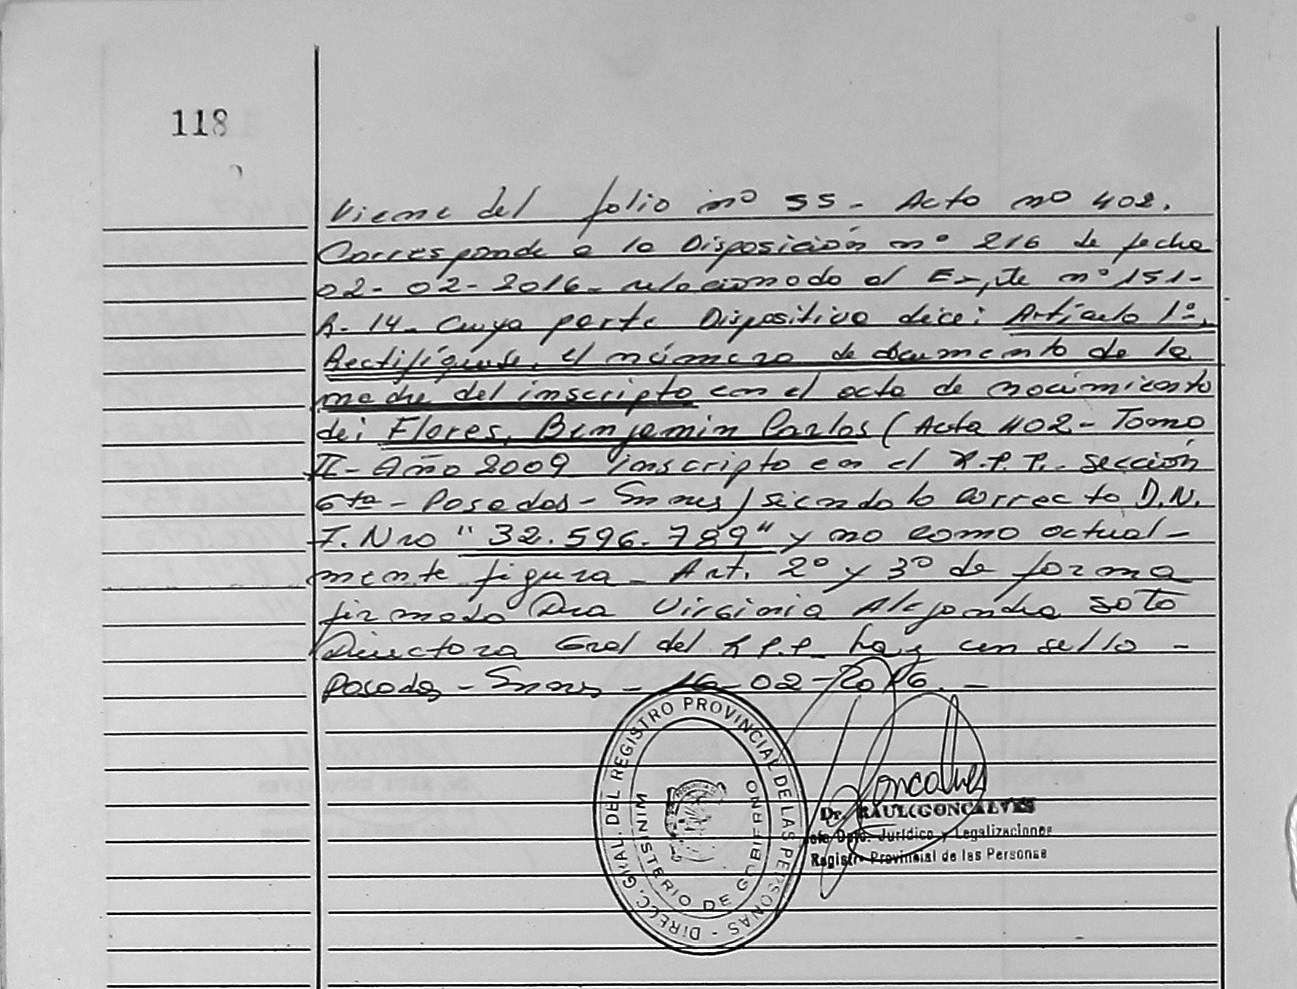 118
Viene del folio nº 55 - Acto nº 402.
Corresponde a la Disposición nº 216 de fecha
02-02-2016- relacionado al Expte nº 151-
R-14- Cuya parte Dispositiva dice: Artículo 1º,
Rectifíquese, el número de documento de la
madre del inscripto en el acta de nacimiento
de: Flores, Benjamin Carlos (Acta 402 - Tomo
II - Año 2009 inscripto en el R.P.P. Sección
6ta - Posadas - Smnes) siendo lo correcto D.N.
I. Nro "32.596.789" y no como actual-
mente figura - Art. 2º y 3º de forma
firmado Dra Virginia Alejandra Soto
Directora Gral del R.P.P. hay un sello -
Posadas - Smnes - 16-02-2016. -
DIRECC. GRAL. DEL REGISTRO PROVINCIAL DE LAS PERSONAS -
MINISTERIO DE GOBIERNO
Goncalves
Dr. RAUL GONCALVES
Jefe Dpto. Jurídico y Legalizaciones
Registro Provincial de las Personas